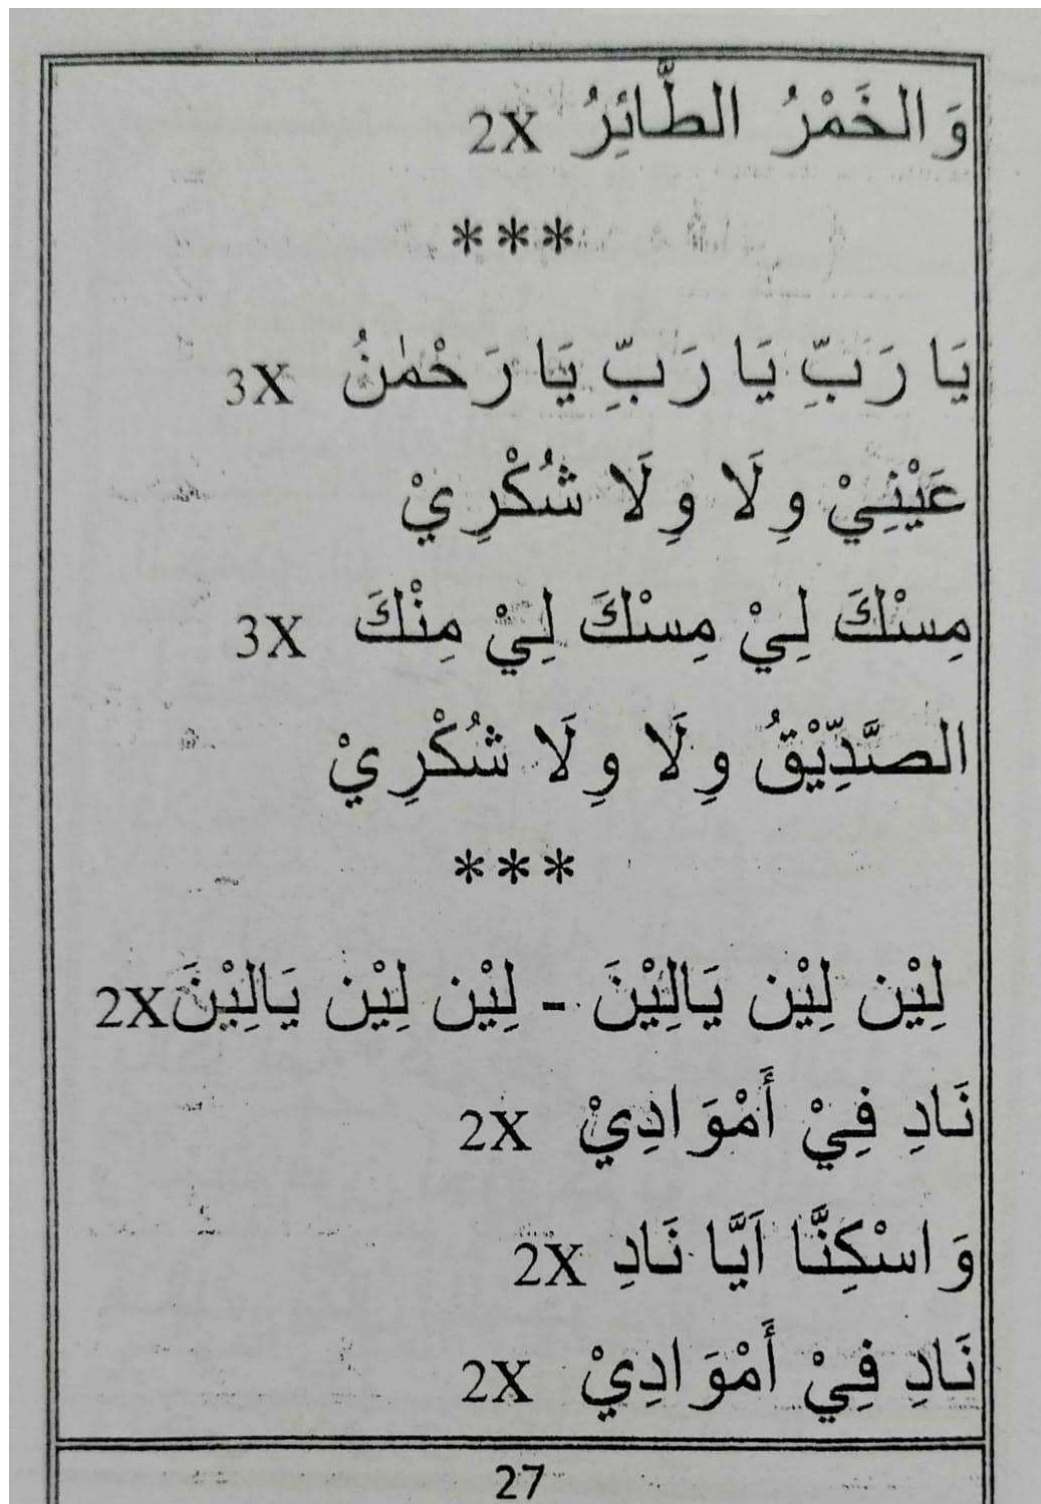 وَالخَمْرُ الطَّائِرُ 2X
***
يَا رَبِّ يَا رَبِّ يَا رَحْمٰنُ 3X
عَيْنِيْ وِلَا وِلَا شُكْرِيْ
مِسْكَ لِيْ مِسْكَ لِيْ مِنْكَ 3X
الصَّدِّيْقُ وِلَا وِلَا شُكْرِيْ
***
لِيْن لِيْن يَالِيْنَ - لِيْن لِيْن يَالِيْنَ 2X
نَادِ فِيْ أَمْوَادِيْ 2X
وَاسْكِنَّا اَيَّا نَادِ 2X
نَادِ فِيْ أَمْوَادِيْ 2X
27